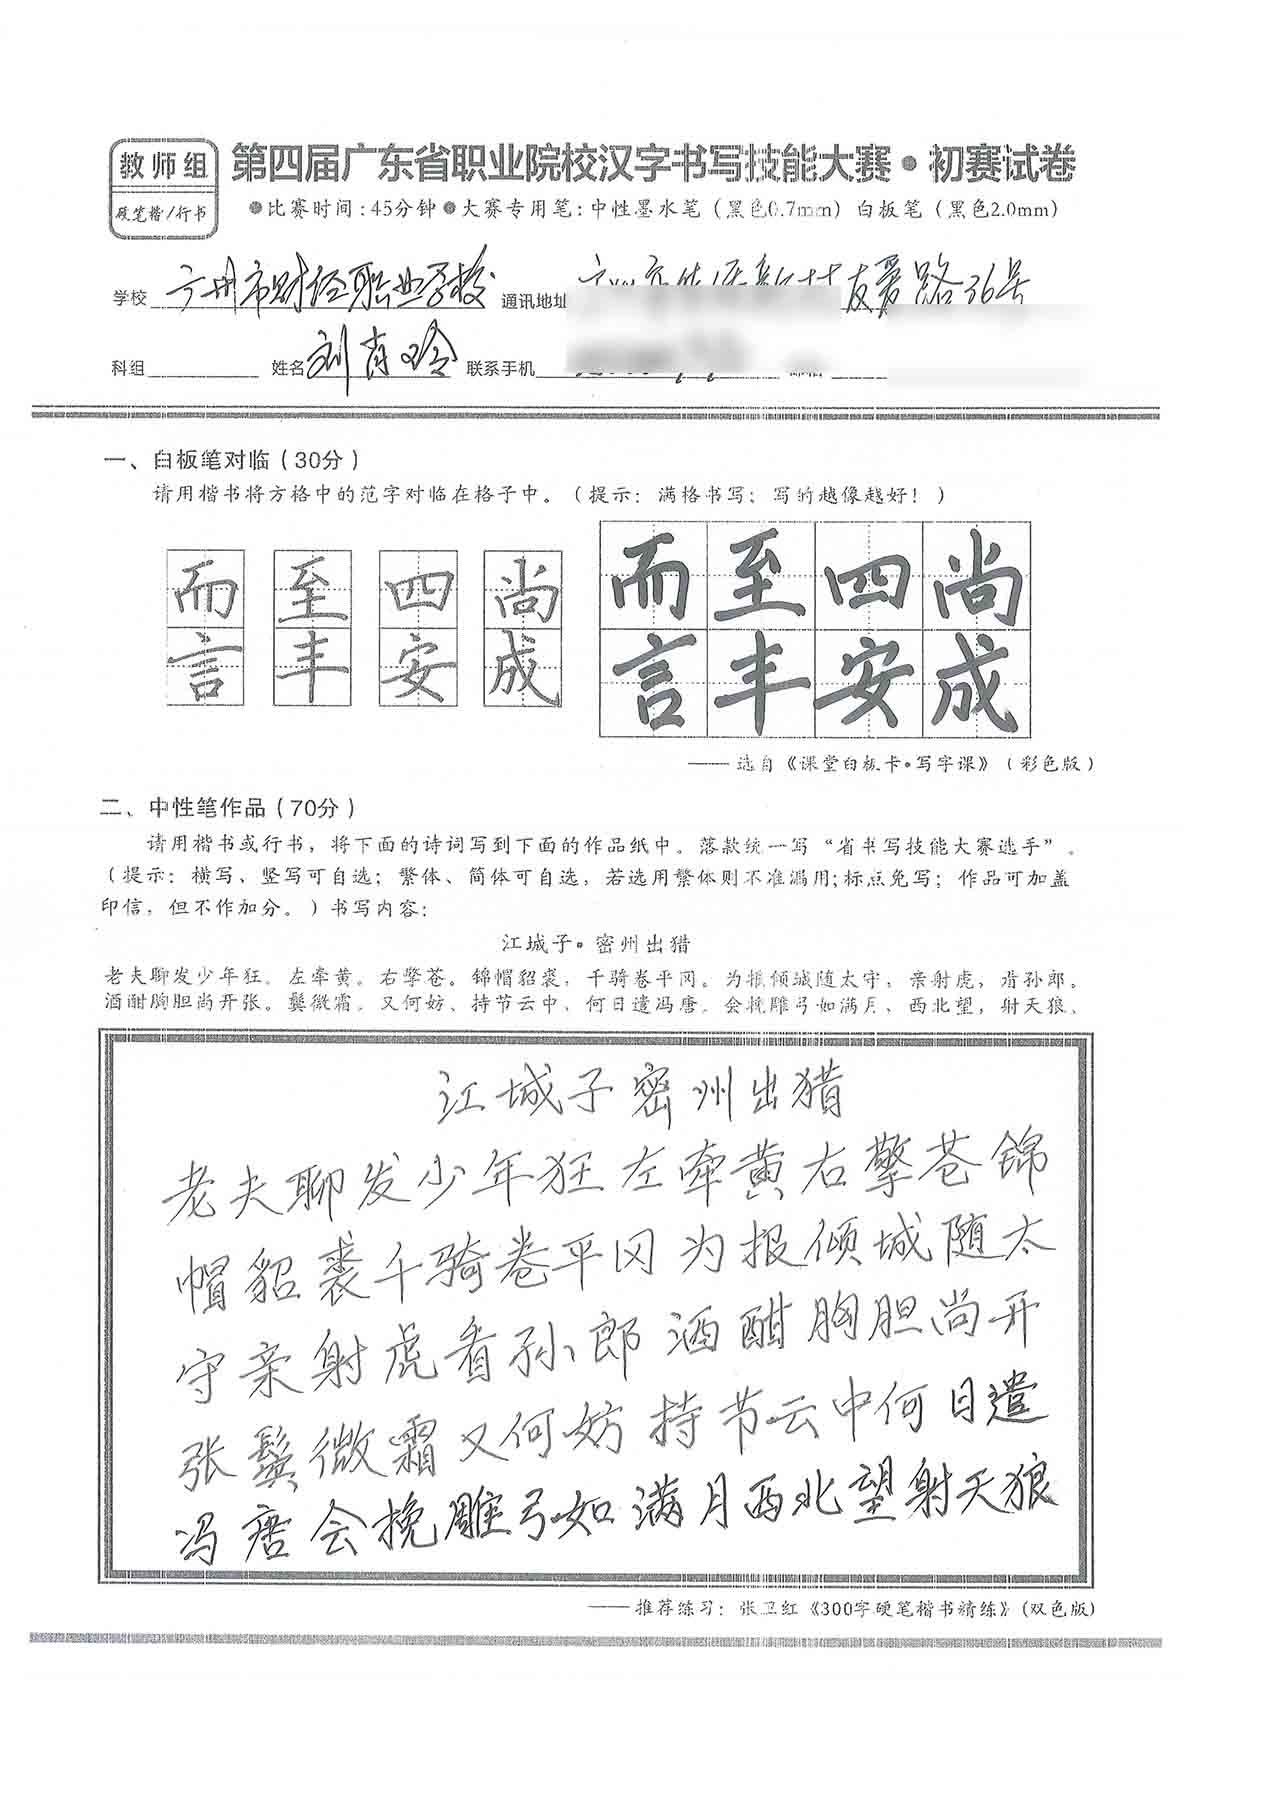 教师组
硬笔楷/行书
第四届广东省职业院校汉字书写技能大赛•初赛试卷
●比赛时间:45分钟●大赛专用笔:中性墨水笔(黑色0.7mm)白板笔(黑色2.0mm)
学校 广州市财经职业学校 通讯地址 友爱路36号
科组 姓名 刘肖玲 联系手机
一、白板笔对临(30分)
请用楷书将方格中的范字对临在格子中。(提示:满格书写;写的越像越好!)
而 至 四 尚 而 至 四 尚
言 丰 安 成 言 丰 安 成
——选自《课堂白板卡•写字课》(彩色版)
二、中性笔作品(70分)
请用楷书或行书,将下面的诗词写到下面的作品纸中。落款统一写“省书写技能大赛选手”。
(提示:横写、竖写可自选;繁体、简体可自选,若选用繁体则不准漏用;标点免写;作品可加盖
印信,但不作加分。)书写内容:
江城子•密州出猎
老夫聊发少年狂。左牵黄。右擎苍。锦帽貂裘,千骑卷平冈。为报倾城随太守,亲射虎,看孙郎。
酒酣胸胆尚开张。鬓微霜。又何妨、持节云中、何日遣冯唐。会挽雕弓如满月、西北望,射天狼、
江城子密州出猎
老夫聊发少年狂左牵黄右擎苍锦
帽貂裘千骑卷平冈为报倾城随太
守亲射虎看孙郎酒酣胸胆尚开
张鬓微霜又何妨持节云中何日遣
冯唐会挽雕弓如满月西北望射天狼
——推荐练习:张卫红《300字硬笔楷书精练》(双色版)